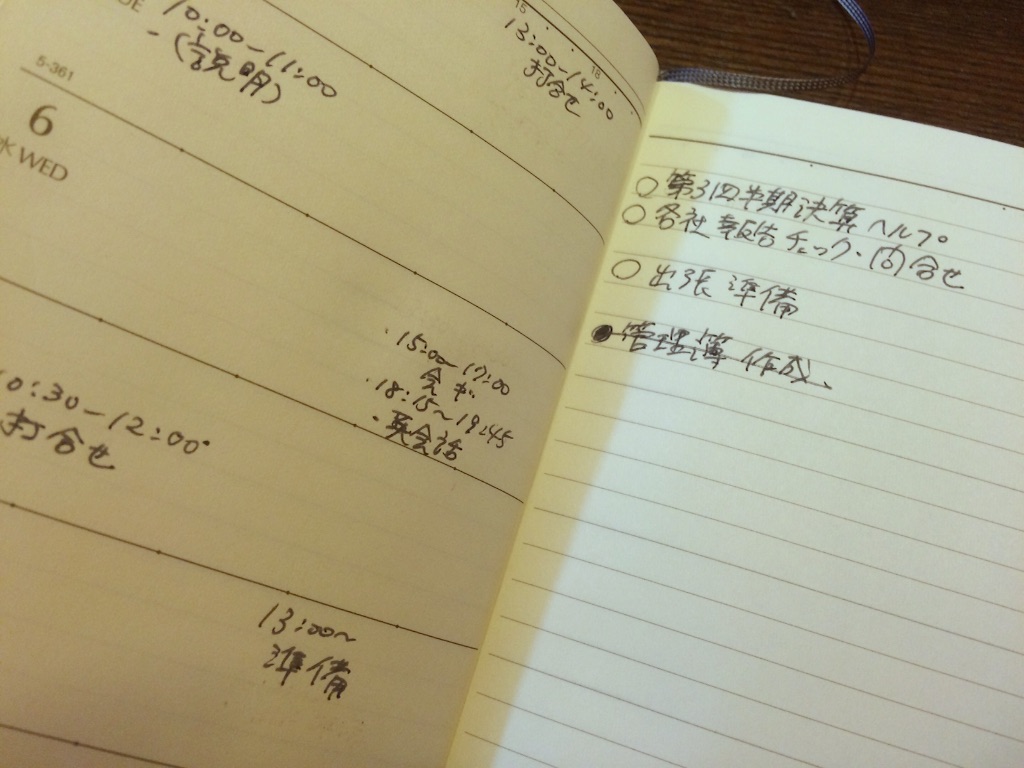 10:00-11:00
-(説明)
15
18
13:00-14:00
打合せ
5-361
6
水 WED
15:00~17:00
会ギ
18:15~19:45
・英会話
10:30-12:00
打合せ
13:00~
準備
○ 第3四半期決算ヘルプ
○ 各社報告チェック、問合せ
○ 出張準備
● 管理簿作成、